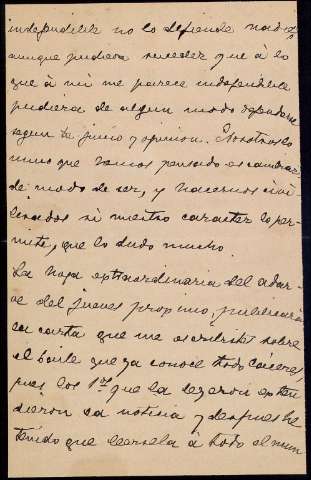 indefendible no lo defiende nadie
aunque pudiera suceder que á lo
que á mi me parece indefendible
pudiera de algun modo
segun tu juicio y opinion. Nosotros lo
unico que hemos pensado es cambiar
de modo de ser, y hacernos civi
lizados si nuestro caracter lo per-
mite, que lo dudo mucho.
La hoja extraordinaria del adar-
ve del jueves proximo, publicará
la carta que me escribiste sobre
el baile que ya conoce todo Cáceres,
pues los 1ros que la leyeron exten
dieron la noticia y despues he
tenido que leersela á todo el mun